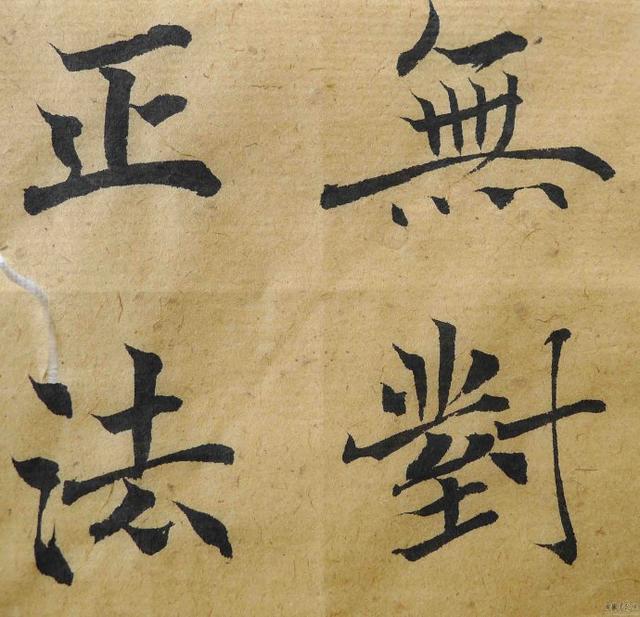 無對
正法